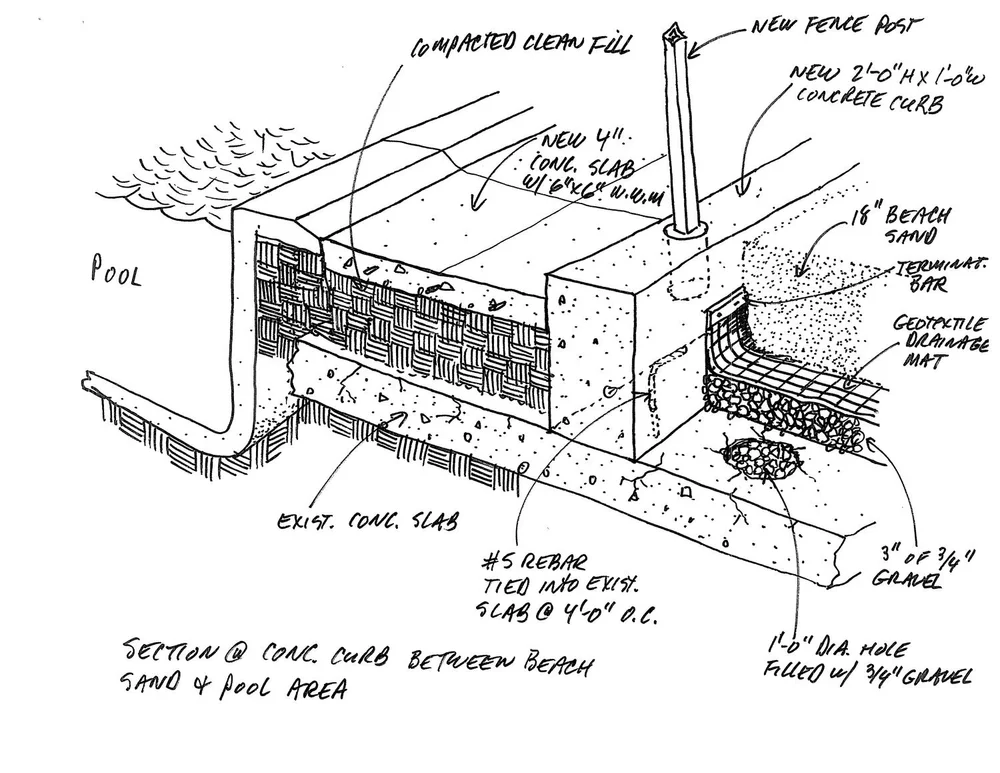 COMPACTED CLEAN FILL
NEW FENCE POST
NEW 2'-0"H X 1'-0"W
CONCRETE CURB
NEW 4"
CONC. SLAB
W/ 6"X6" W.W.M
18" BEACH
SAND
TERMINAT.
BAR
POOL
GEOTEXTILE
DRAINAGE
MAT
EXIST. CONC. SLAB
#5 REBAR
TIED INTO EXIST.
SLAB @ 4'-0" O.C.
3" OF 3/4"
GRAVEL
1'-0" DIA. HOLE
FILLED W/ 3/4" GRAVEL
SECTION @ CONC. CURB BETWEEN BEACH
SAND & POOL AREA